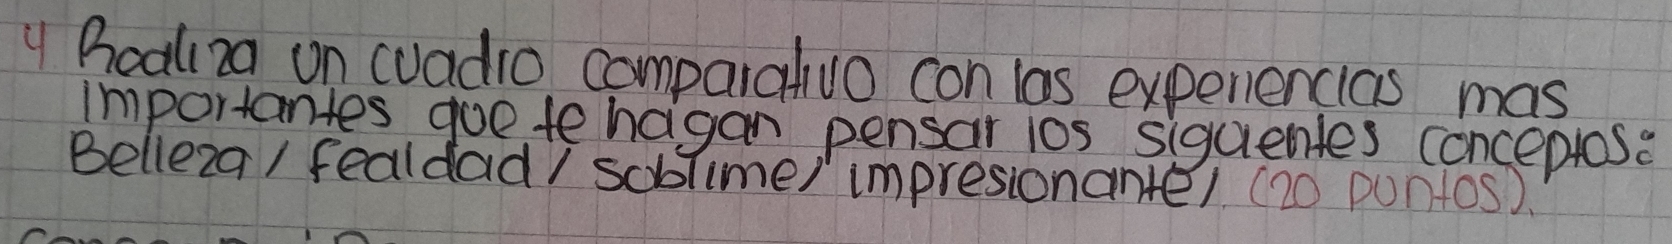 4 Realiza un cuadro comparativo con las experiencias mas
importantes que te hagan pensar los siguientes conceptos:
Belleza / fealdad / soblime / impresionante / (20 puntos).